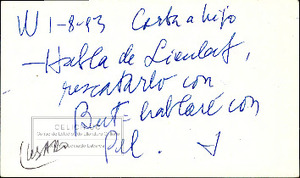 W 1-8-93 Carta a hijo
- Habla de Lieulaf,
rescatarlo con
But = hablaré con
Pel.
CELICH UC